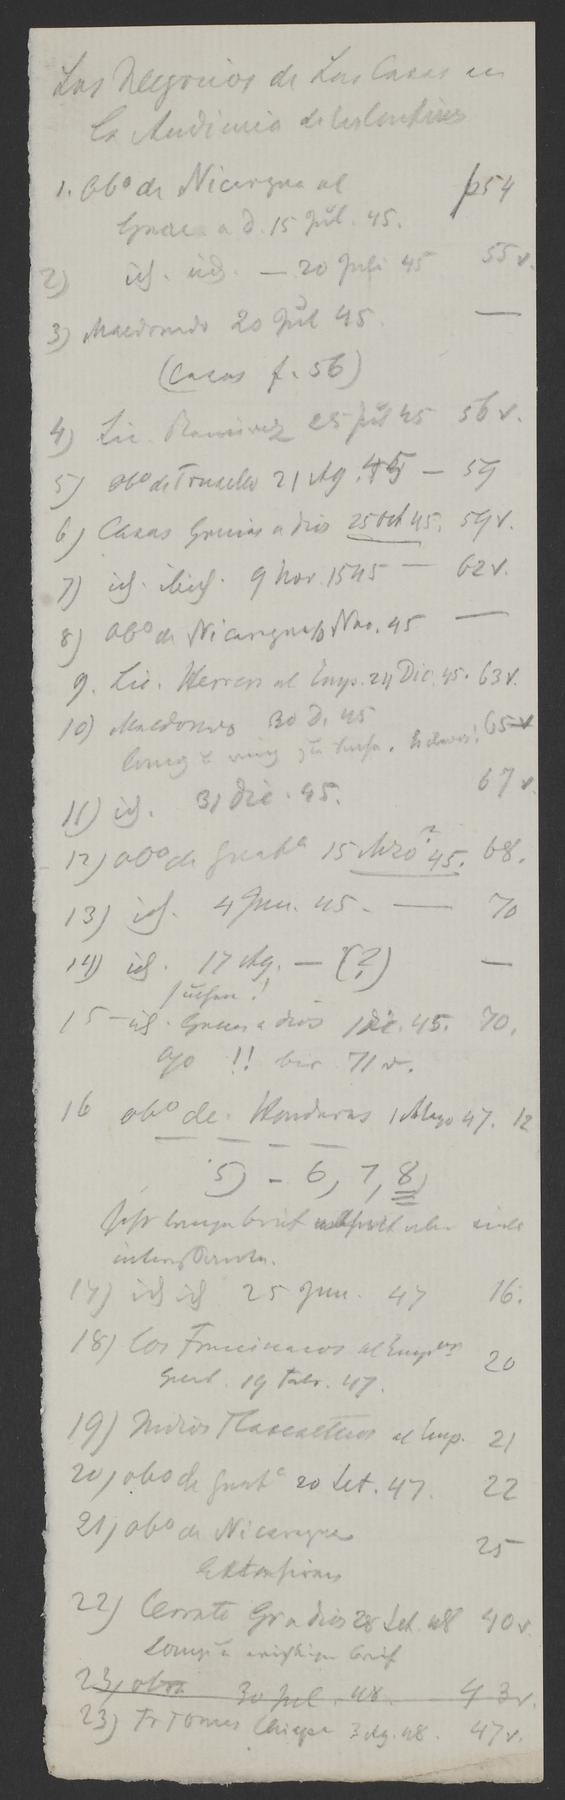 Los Negocios de Las Casas en
la Audiencia de los Confines
1. Obo de Nicaragua al
Grac. a d. 15 Jul. 45. p54
2) id. id. — 20 Juli 45 55 v.
3) Maldonado 20 Jul 45. —
(Casas f. 56)
4) Lic. Ramirez 25 Jul 45 56 v.
5) obo de Truxillo 21 Ag. 45 — 59
6) Casas Gracias a dios 25 Oct 45. 59 v.
7) id. ibid. 9 Nov. 1545 — 62 v.
8) Obo de Nicaragua Nov. 45 —
9. Lic. Herrera al Emp. 24 Dic. 45. 63 v.
10) Maldonado 30 D. 45 65 v
11) id. 31 Dic. 45. 67 v.
12) obo de Guata 15 Mzo? 45. 68.
13) id. 4 Jun. 45. — 70
14) id. 17 Ag. — (?) —
suchen!!
15 – id. Gracias a dios 1 Dic. 45. 70.
!! bis 71 v.
16 obo de Honduras 1 Mayo 47. 12
5) – 6, 7, 8)
17) id id 25 Jun. 47 16.
18) Los Franciscanos al Emp
Guat. 19 47. 20
19) Indios Tlaxcaltecos al Emp. 21
20) obo de Guata 20 Set. 47. 22
21) obo de Nicaragua 25
22) Cerrato Gr a dios 28 Set. 48 40 v.
brief
23) obo 30 Jul. 48. 43 v.
23) Fr Tomas Chiapa 3 Ag. 48. 47 v.